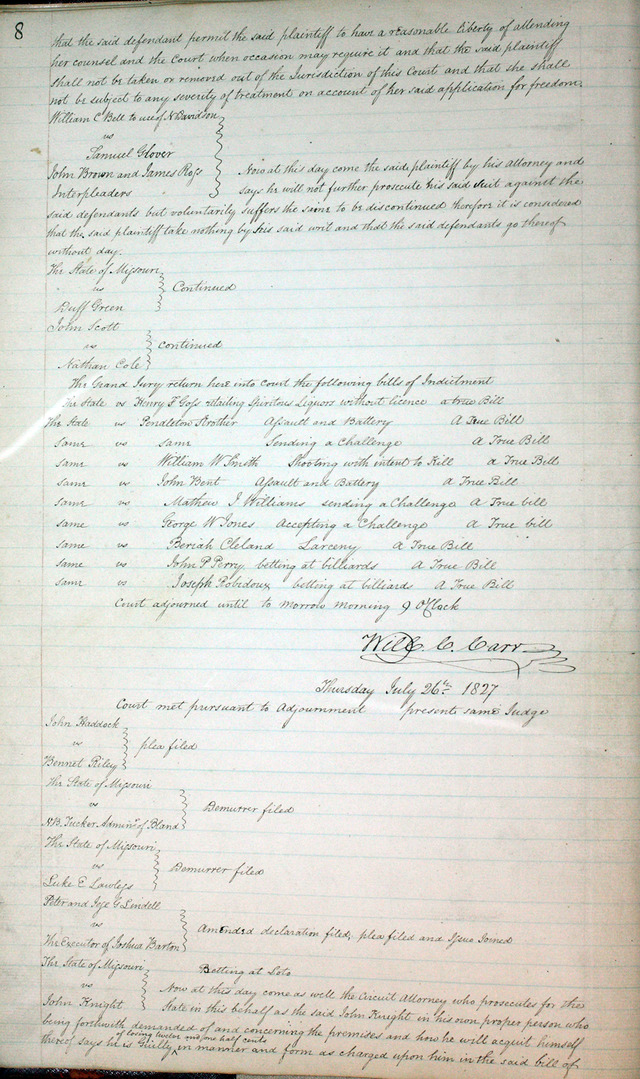 8
that the said defendant permit the said plaintiff to have a reasonable liberty of attending
her counsel and the Court when occasion may require it and that the said plaintiff
shall not be taken or removed out of the Jurisdiction of this Court and that she shall
not be subject to any severity of treatment on account of her said application for freedom.
William C Bell to use of N Davidson
vs
Samuel Glover
John Brown and James Ross Now at this day come the said plaintiff by his Attorney and
Interpleaders says he will not further prosecute his said suit against the
said defendants but voluntarily suffers the same to be discontinued therefore it is considered
that the said plaintiff take nothing by his said writ and that the said defendants go thereof
without day.
The State of Missouri
vs Continued
Duff Green
John Scott
vs continued
Nathan Cole
The Grand Jury return here into Court the following bills of Indictment
The State vs Henry F Goss retailing Spiritous Liquors without licence a true Bill
The State vs Pendleton Strother Assault and Battery A True Bill
same vs same Sending a Challenge A True Bill
same vs William W Smith Shooting with intent to Kill a True Bill
same vs John Bent Assault and Battery A True Bill
same vs Mathew J Williams sending a Challenge A True bill
same vs George W Jones Accepting a Challenge a True bill
same vs Beriah Cleland Larceny A True Bill
same vs John P Perry betting at billiards A True Bill
same vs Joseph Robidoux betting at billiards A True Bill
Court adjourned until to morrow morning 9 O'Clock
Will. C. Carr
Thursday July 26th 1827
Court met pursuant to Adjournment present same Judge
John Haddock
vs plea filed
Bennet Riley
The State of Missouri
vs Demurrer filed
N.B. Tucker Adminr of Bland
The State of Missouri
vs Demurrer filed
Luke E Lawless
Peter and Jesse G. Lindell
vs Amended declaration filed, plea filed and Issue Joined
The Executor of Joshua Barton
The State of Missouri Betting at Loto
vs Now at this day come as well the Circuit Attorney who prosecutes for the
John Knight State in this behalf as the said John Knight in his own proper person who
being forthwith demanded of and concerning the premises and how he will acquit himself
of losing twelve and one half cents
thereof says he is Guilty in manner and form as charged upon him in the said bill of